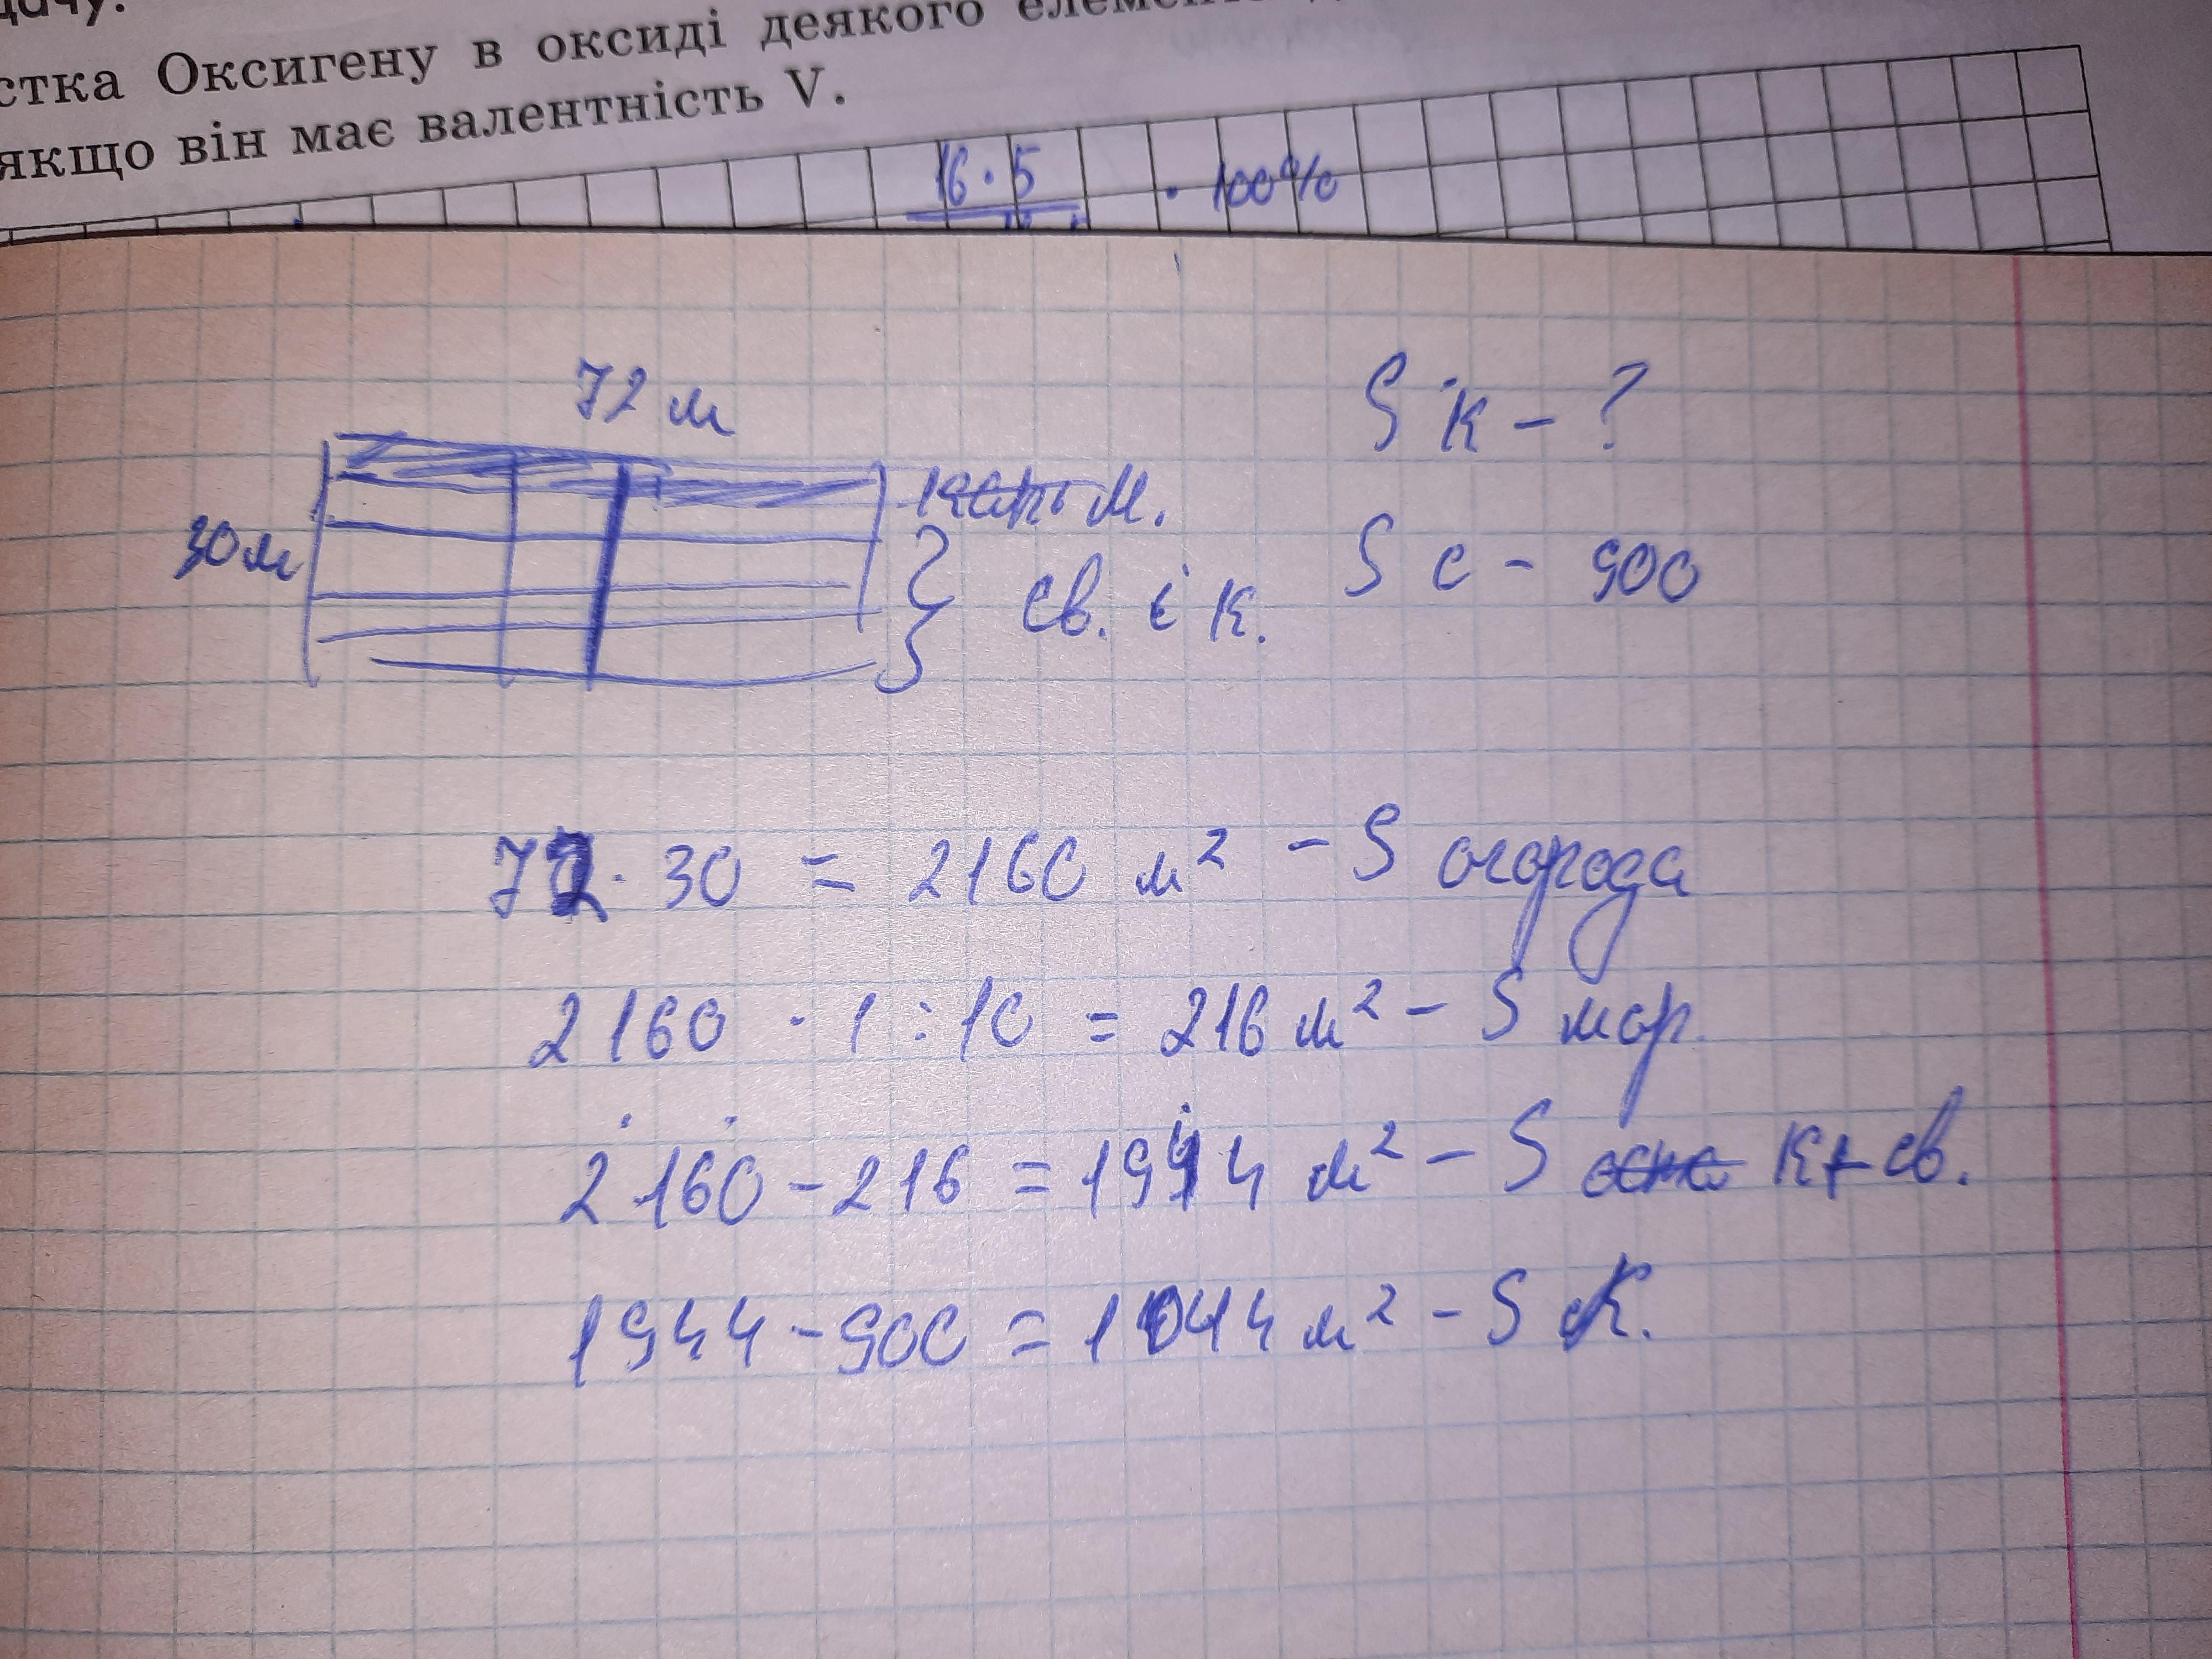 стка Оксигену в оксиді деякого
якщо він має валентність V.
16 · 5 · 100%
72 м
S к - ?
30 м
м.
св. і к.
S с - 900
72 · 30 = 2160 м² - S огорода
2160 · 1 : 10 = 216 м² - S мор.
2160 - 216 = 1944 м² - S к + св.
1944 - 900 = 1044 м² - S к.